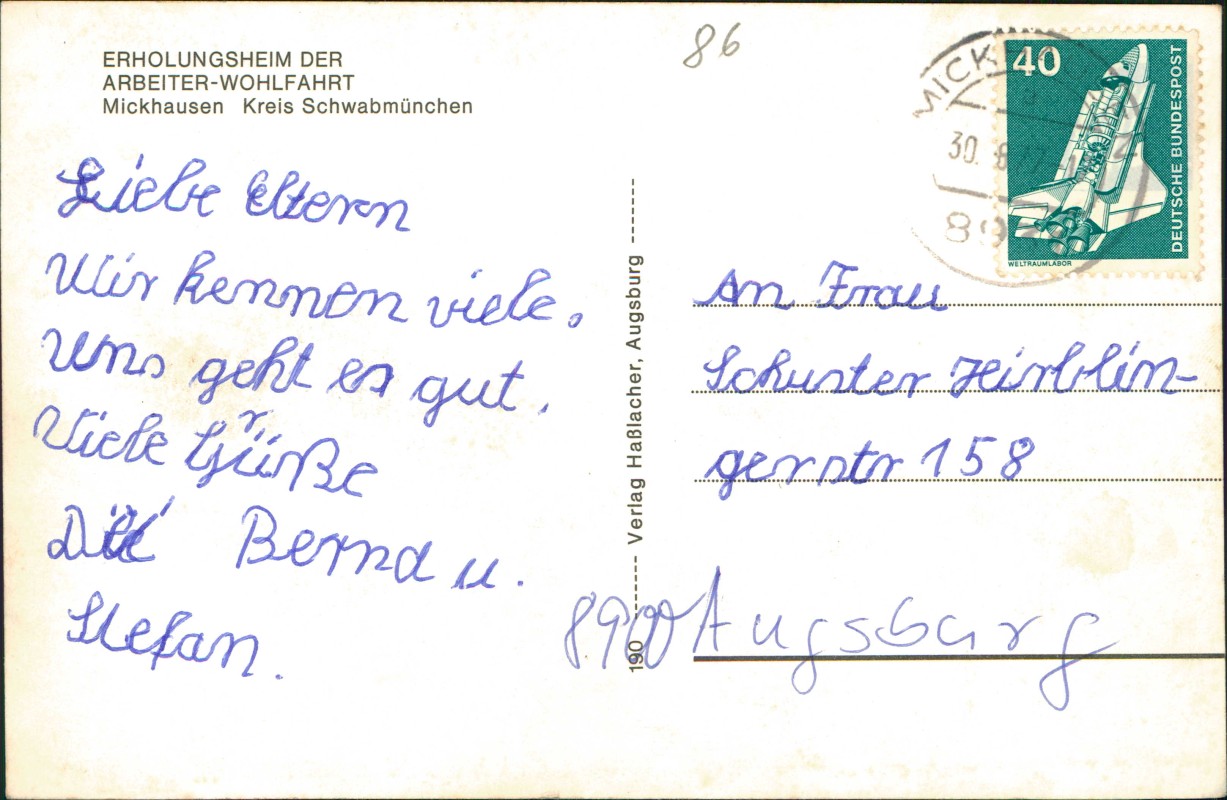 86
ERHOLUNGSHEIM DER
ARBEITER-WOHLFAHRT
Mickhausen Kreis Schwabmünchen
Liebe Eltern
Wir kennen viele.
Uns geht es gut.
Viele Grüße
Bernd u.
Stefan.
190 Verlag Haßlacher, Augsburg
40
DEUTSCHE BUNDESPOST
WELTRAUMLABOR
MICK
30.
89
An Frau
Schuster Hirblin-
gerstr 158
8900 Augsburg